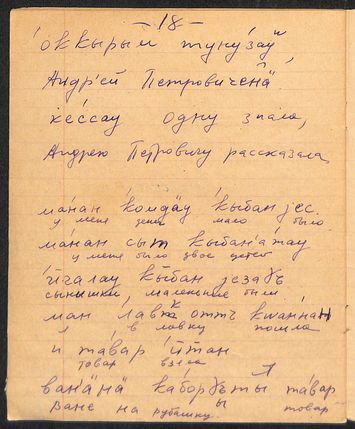 – 18 –
о́ккырым туну́заӱ
Андре́й Петровиченӓ
ке́ссау одну знала,
Андрею Петровичу рассказала,
ма́нан комдӓу кыбан jес.
у меня денег мало было
ма́нан сыт кыбан'а́жау
у меня было двое детей
и́галау кы́бан jезадъ
сынишки маленькие были
ман ла́вк оттъ кwанна́н
я в лавку пошла
и та́вар и́тан
товар взела
ван'а́нӓ ка́бордъты та́вар
Ване на рубашку товар